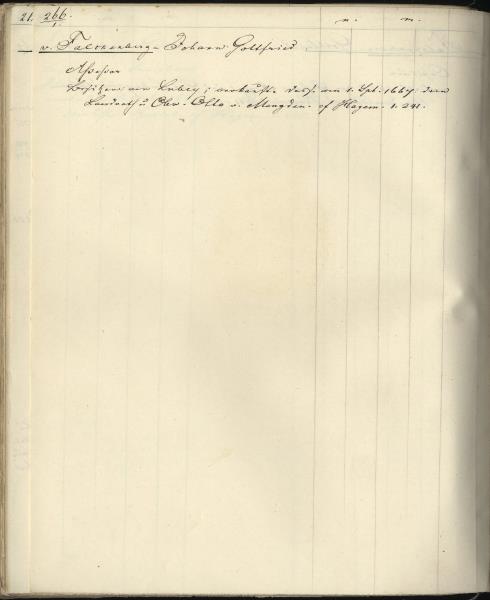 21. 266. n. m.
1
v. Falckenberg Johann Gottfried
Assessor
Besitzer von ; verkauft dass. am 1. Spt. 1667. dem
Landrath u. Obr. Otto v. Mengden. cf Hagem. 1. 241.